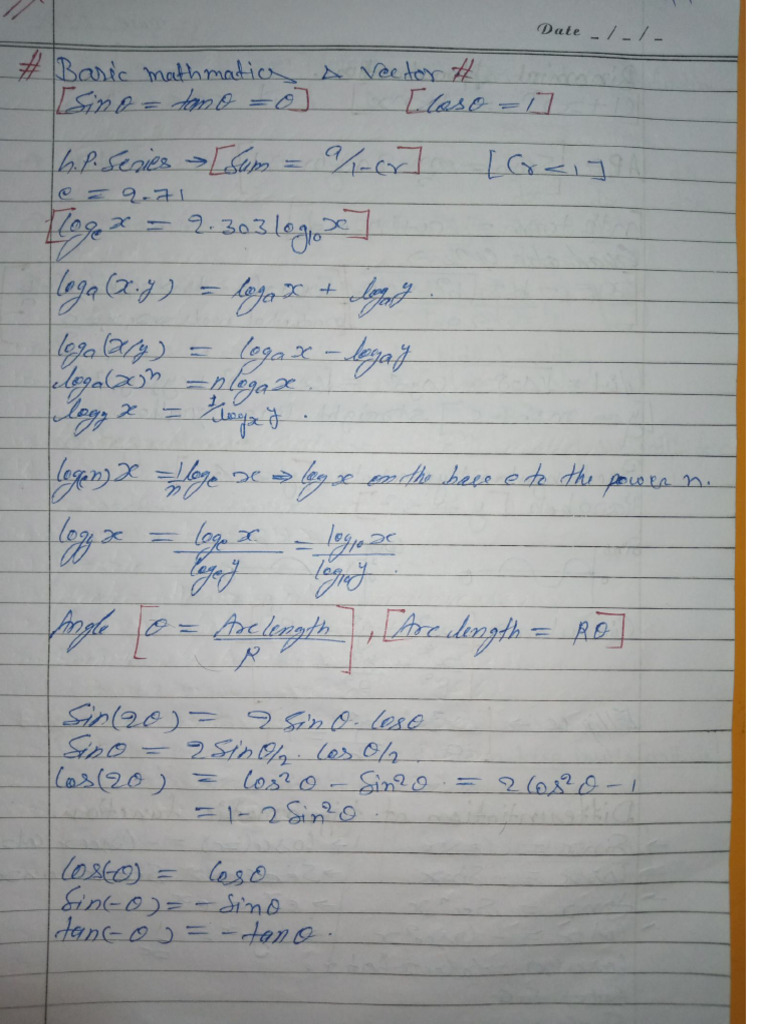 Date _/_/_
# Basic mathmatics & vector #
[Sinθ = tanθ = θ] [Cosθ = 1]
G.P. Series → [Sum = a/1-Cr] [Cr < 1]
e = 2.71
[logₑx = 2.303 log₁₀x]
logₐ(x.y) = logₐx + logₐy.
logₐ(x/y) = logₐx - logₐy
logₐ(x)ⁿ = n logₐx.
log_y x = 1/log_x y.
log(eⁿ)x = 1/n logₑ x ⇒ log x on the base e to the power n.
log_y x = logₑx / logₑy = log₁₀x / log₁₀y.
Angle [θ = Arc length / R], [Arc length = Rθ]
Sin(2θ) = 2 Sinθ. Cosθ
Sinθ = 2 Sinθ/2. Cosθ/2.
Cos(2θ) = Cos²θ - Sin²θ = 2Cos²θ - 1
= 1 - 2Sin²θ.
Cos(-θ) = Cosθ
Sin(-θ) = - Sinθ
tan(-θ) = - tanθ.